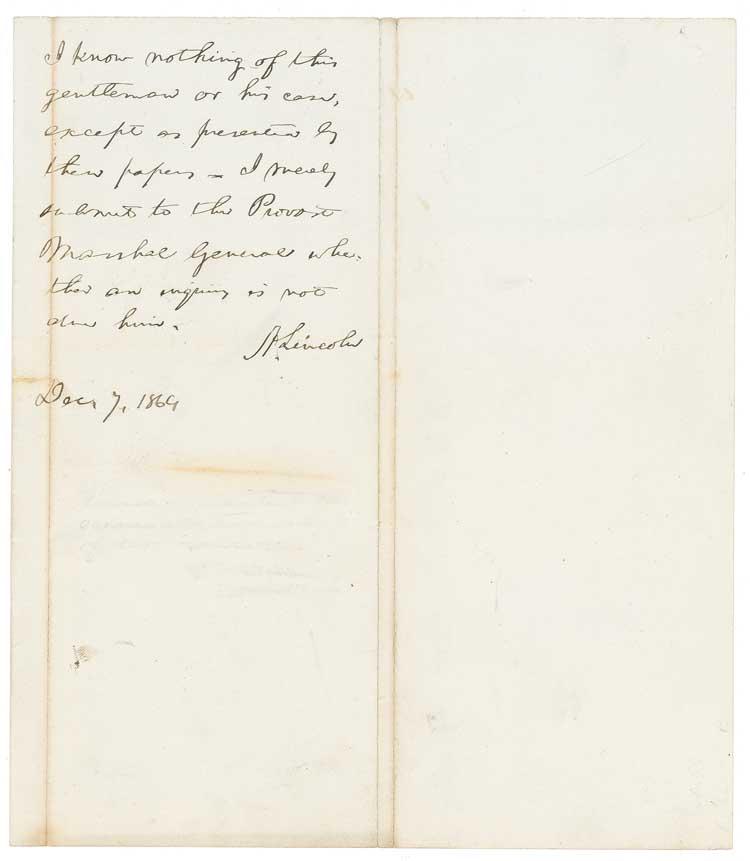 I know nothing of this
gentleman or his case,
except as presented by
these papers – I merely
submit to the Provost
Marshal General whe-
ther an inquiry is not
due him.
A. Lincoln
Dec. 7, 1864